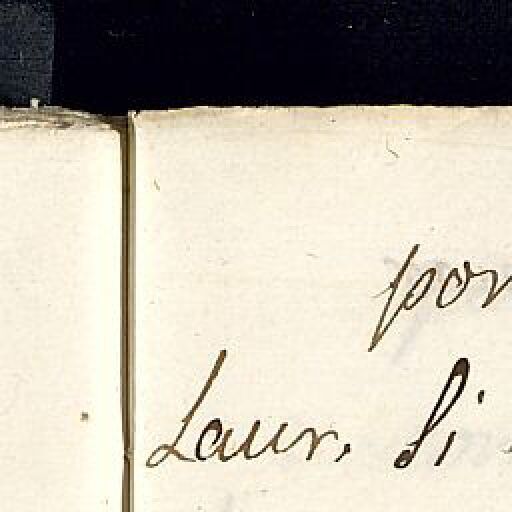 por
Laur. Si